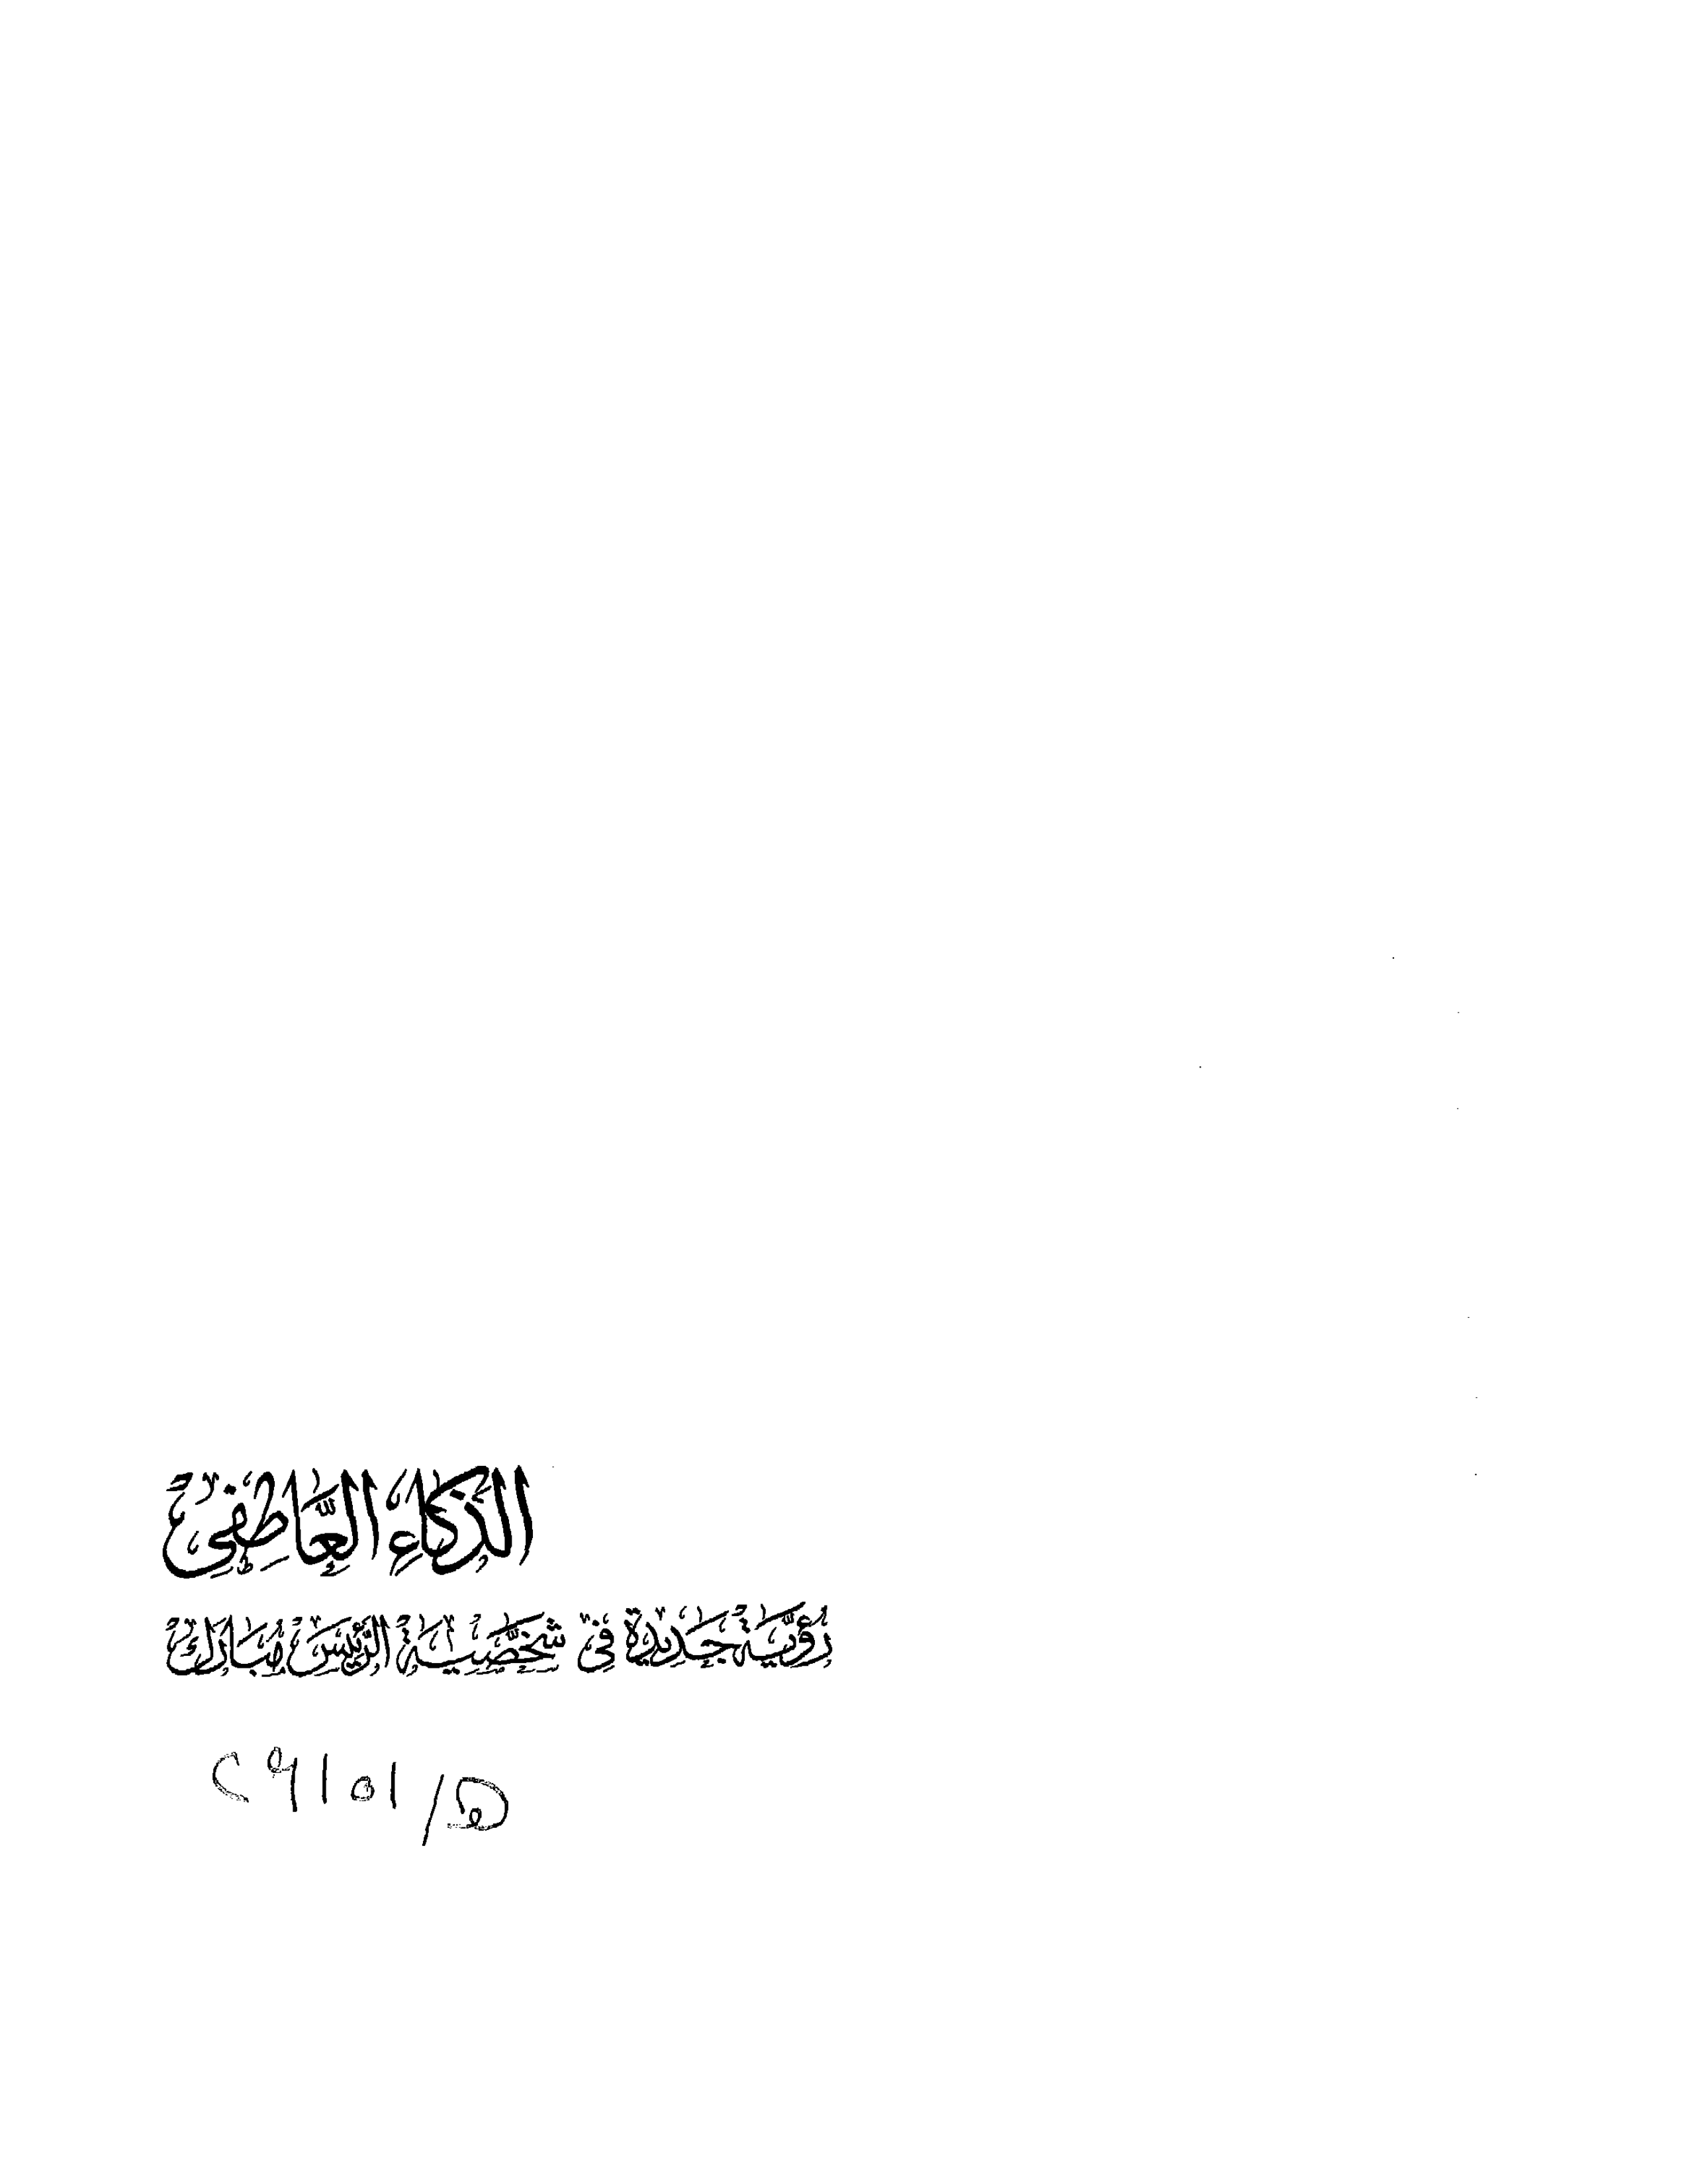 الذكاء العاطفى
رؤية جديدة فى شخصية الرئيس مبارك